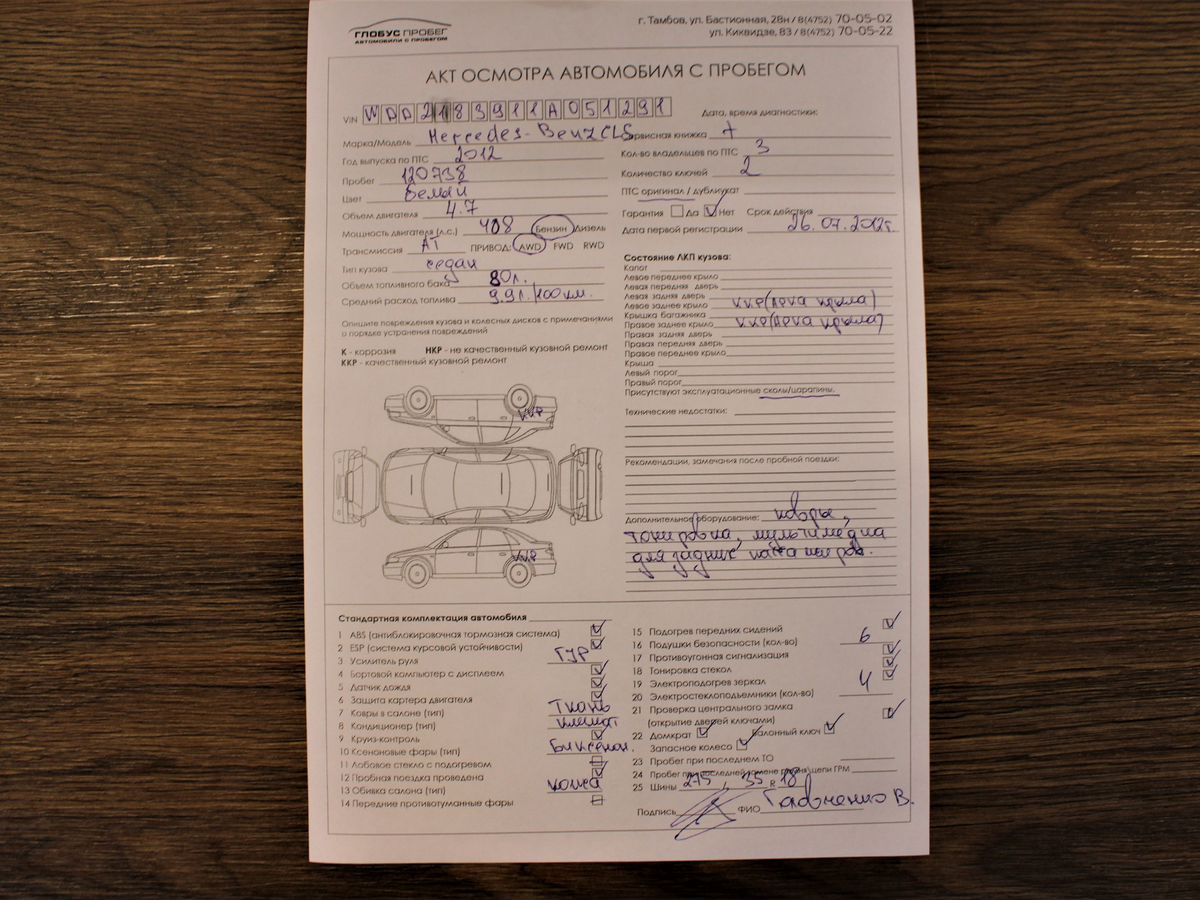 ГЛОБУС ПРОБЕГ
АВТОМОБИЛИ С ПРОБЕГОМ
г. Тамбов, ул. Бастионная, 28н / 8(4752) 70-05-02
ул. Киквидзе, 83 / 8(4752) 70-05-22
АКТ ОСМОТРА АВТОМОБИЛЯ С ПРОБЕГОМ
VIN WDD2183911A051291
Марка/Модель Mercedes-Benz CLS
Год выпуска по ПТС 2012
Пробег 120738
Цвет Белый
Объем двигателя 4.7
Мощность двигателя (л.с.) 408 Бензин Дизель
Трансмиссия АТ ПРИВОД: AWD FWD RWD
Тип кузова седан
Объем топливного бака 80л.
Средний расход топлива 9.9л./100км.
Опишите повреждения кузова и колесных дисков с примечаниями
о порядке устранения повреждений
К - коррозия НКР - не качественный кузовной ремонт
ККР - качественный кузовной ремонт
ККР
ККР
Дата, время диагностики:
Сервисная книжка +
Кол-во владельцев по ПТС 3
Количество ключей 2
ПТС оригинал / дубликат
Гарантия Да Нет Срок действия
Дата первой регистрации 26.07.2012г.
Состояние ЛКП кузова:
Капот
Левое переднее крыло
Левая передняя дверь
Левая задняя дверь
Левое заднее крыло ККР(арка крыла)
Крышка багажника
Правое заднее крыло ККР(арка крыла)
Правая задняя дверь
Правая передняя дверь
Правое переднее крыло
Крыша
Левый порог
Правый порог
Присутствуют эксплуатационные сколы/царапины.
Технические недостатки:
Рекомендации, замечания после пробной поездки:
Дополнительное оборудование: ковры,
тонировка, мультимедиа
для задних пассажиров.
Стандартная комплектация автомобиля
1 ABS (антиблокировочная тормозная система)
2 ESP (система курсовой устойчивости)
3 Усилитель руля ГУР
4 Бортовой компьютер с дисплеем
5 Датчик дождя
6 Защита картера двигателя
7 Ковры в салоне (тип) Ткань
8 Кондиционер (тип) климат
9 Круиз-контроль
10 Ксеноновые фары (тип) Биксенон.
11 Лобовое стекло с подогревом
12 Пробная поездка проведена
13 Обивка салона (тип) кожа
14 Передние противотуманные фары
15 Подогрев передних сидений
16 Подушки безопасности (кол-во) 6
17 Противоугонная сигнализация
18 Тонировка стекол
19 Электроподогрев зеркал
20 Электростеклоподъемники (кол-во) 4
21 Проверка центрального замка
(открытие дверей ключами)
22 Домкрат Балонный ключ
Запасное колесо
23 Пробег при последнем ТО
24 Пробег при последней замене ремня\цепи ГРМ
25 Шины 275, 35 R 18
Подпись ФИО